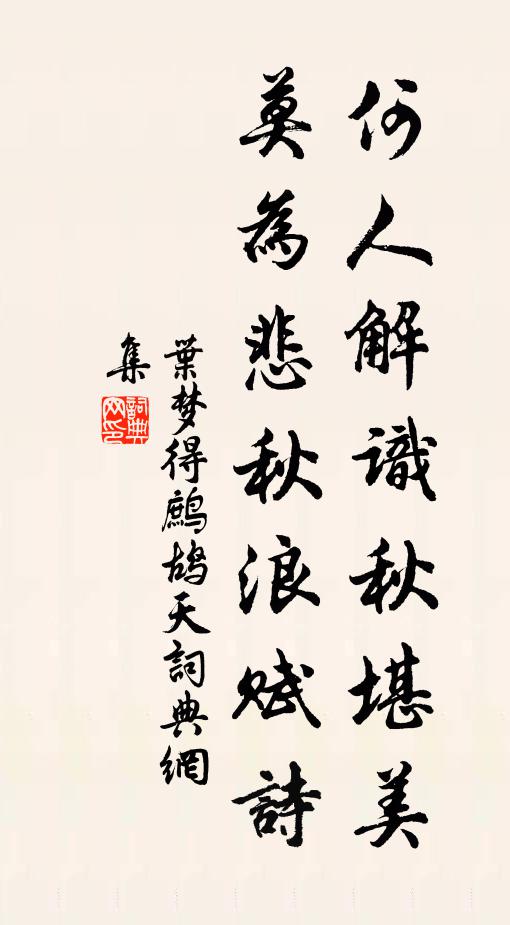 何人解識秋堪美
莫為悲秋浪賦詩
葉梦得鷓鴣天詞典網
集
詞典网印